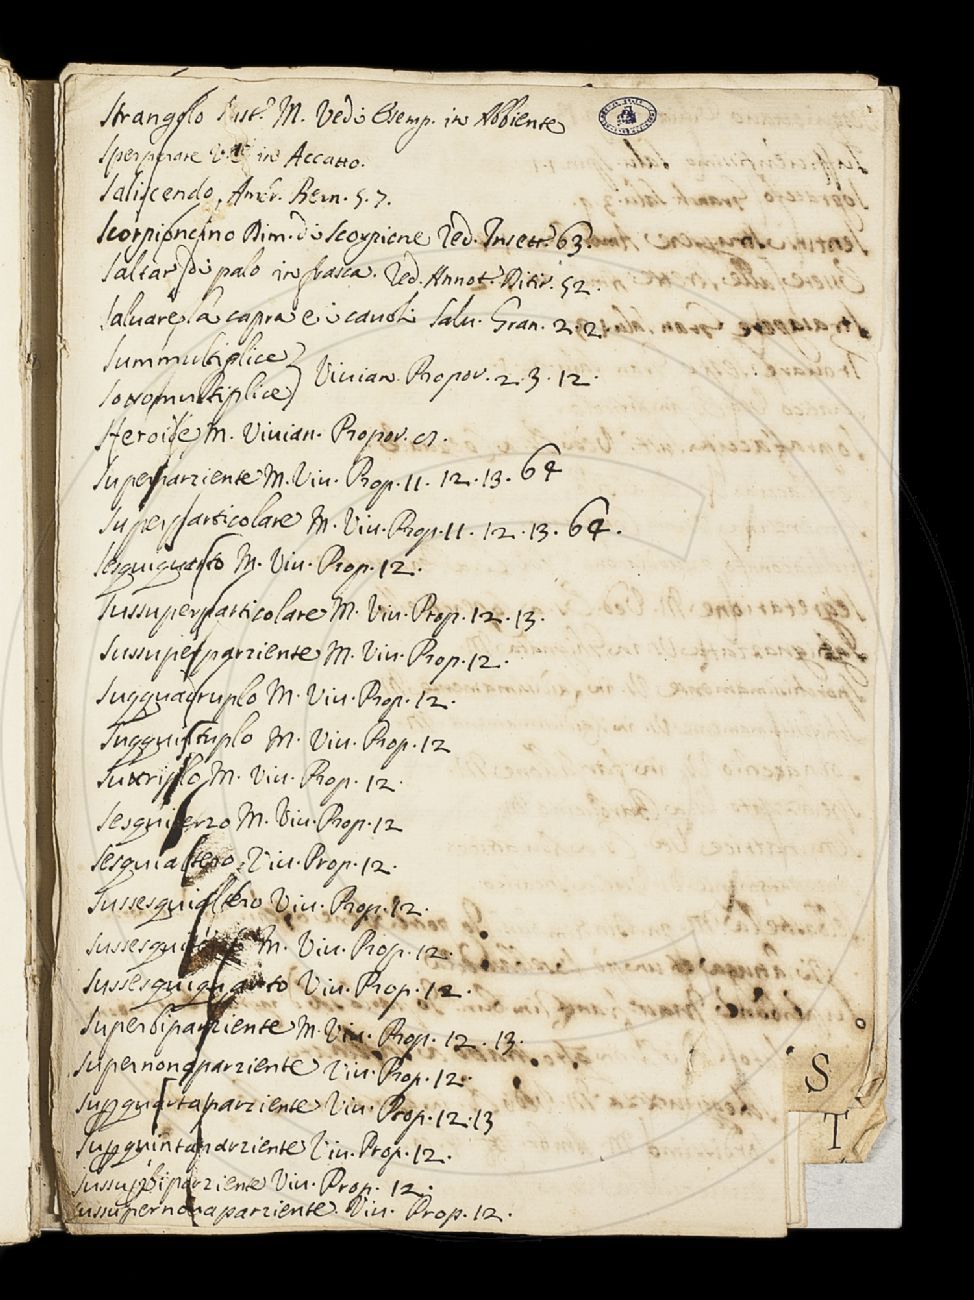 Strangolo Sust. M. Vedi Esemp. in Abbiente
Sperperare V. in Accatto.
Saliscendo, Ambr. Bern. 5. 7.
Scorpioncino Dim. di Scorpione Red. Insett. 63.
Saltar di palo in frasca. Red. Annot. Ditir. 52.
Salvare la capra e i cavoli Salv. Gran. 2. 2
Summultiplice
Sottomultiplice } Vivian. Propor. 2. 3. 12.
Steroide M. Vivian. Propor.
Superparziente M. Viv. Prop. 11. 12. 13. 64
Superparticolare M. Viv. Prop. 11. 12. 13. 64.
Sesquiquarto M. Viv. Prop. 12.
Sussuperparticolare M. Viv. Prop. 12. 13.
Sussuperparziente M. Viv. Prop. 12.
Suqquadruplo M. Viv. Prop. 12.
Suqquintuplo M. Viv. Prop. 12
Suttriplo M. Viv. Prop. 12.
Sesquiterzo M. Viv. Prop. 12
Sesquialtero, Viv. Prop. 12.
Sussesquialtero Viv. Prop. 12.
M. Viv. Prop. 12.
Sussesquiquarto Viv. Prop. 12.
Superbiparziente M. Viv. Prop. 12. 13.
Supernonaparziente Viv. Prop. 12.
Supquartaparziente Viv. Prop. 12. 13
Supquintaparziente Viv. Prop. 12.
Sussupbiparziente Viv. Prop. 12.
Sussupernonaparziente. Viv. Prop. 12.
S
T